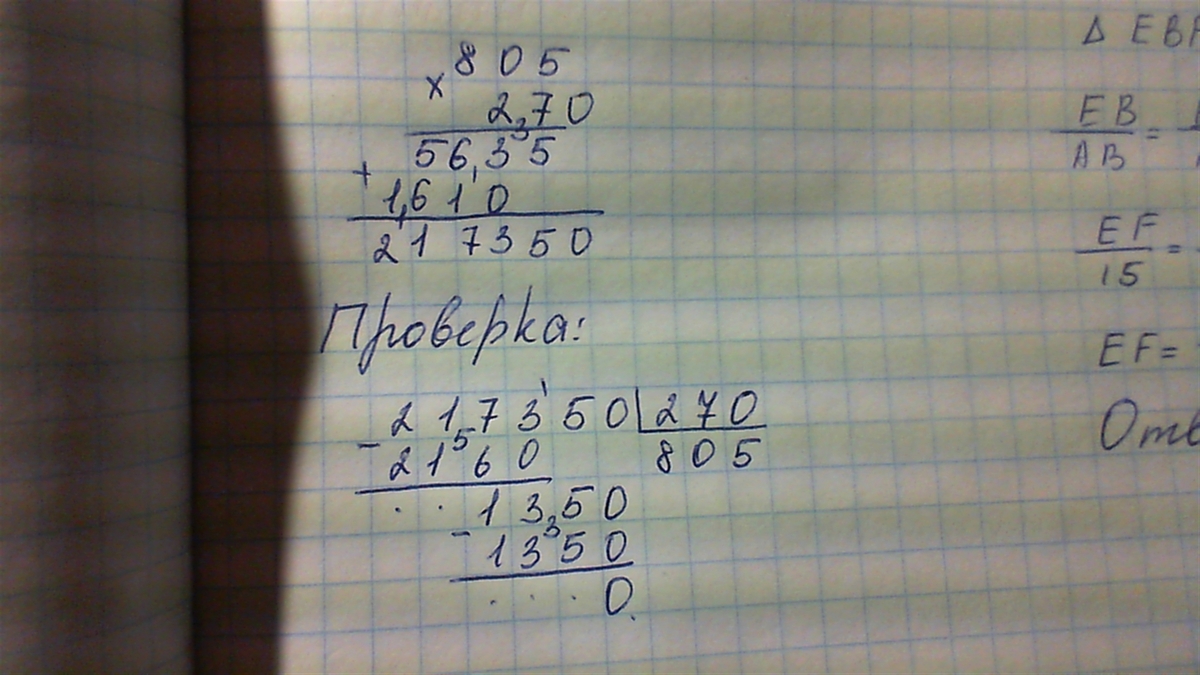 × 805
2,70
3
56,35
+ 1,610
217350
Проверка:
217350 | 270
- 2160 805
5
1350
3
- 1350
0
Δ EB
EB
AB =
EF
15 =
EF =